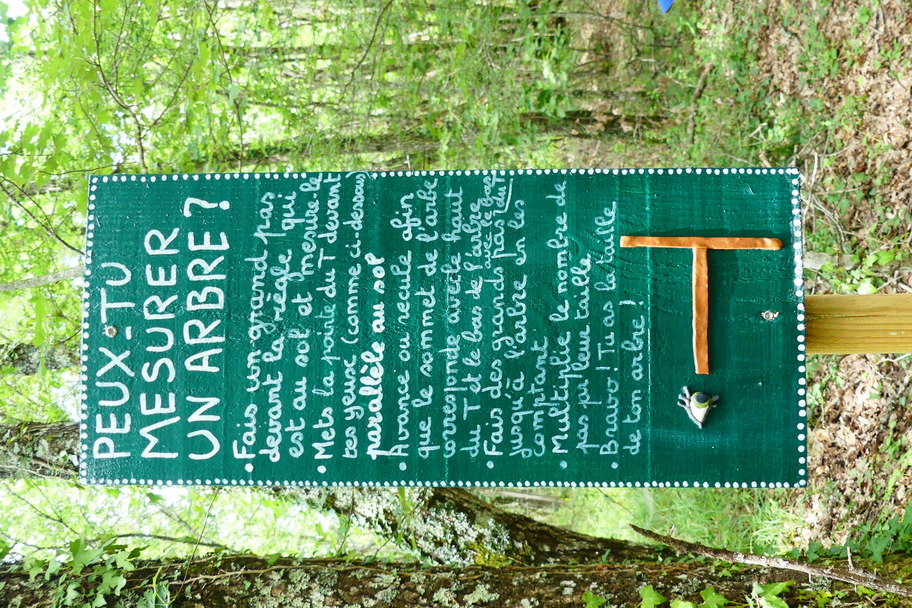 PEUX-TU
MESURER
UN ARBRE ?
• Fais un grand pas
devant la règle qui
est au sol et mesure le
• Mets la partie du T devant
tes yeux (comme ci-dessous)
parallèle au sol
• Avance ou recule afin
que le sommet de l'arbre
corresponde avec le haut
du T et le bas de l'arbre
avec le bas du T
• Fais des grands pas
jusqu'à l'arbre en les
comptant
• Multiplie le nombre de
pas par leur taille
• Bravo ! Tu as la taille
de ton arbre !